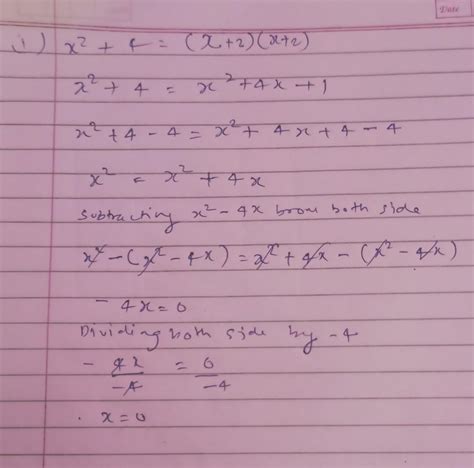 Date
1) x² + 4 = (x+2)(x+2)
x² + 4 = x² + 4x + 1
x² + 4 - 4 = x² + 4x + 4 - 4
x² = x² + 4x
Subtracting x² - 4x brom both side
x² - (x² - 4x) = x² + 4x - (x² - 4x)
- 4x = 0
Dividing both side by -4
- 4x / -4 = 0 / -4
. x = 0